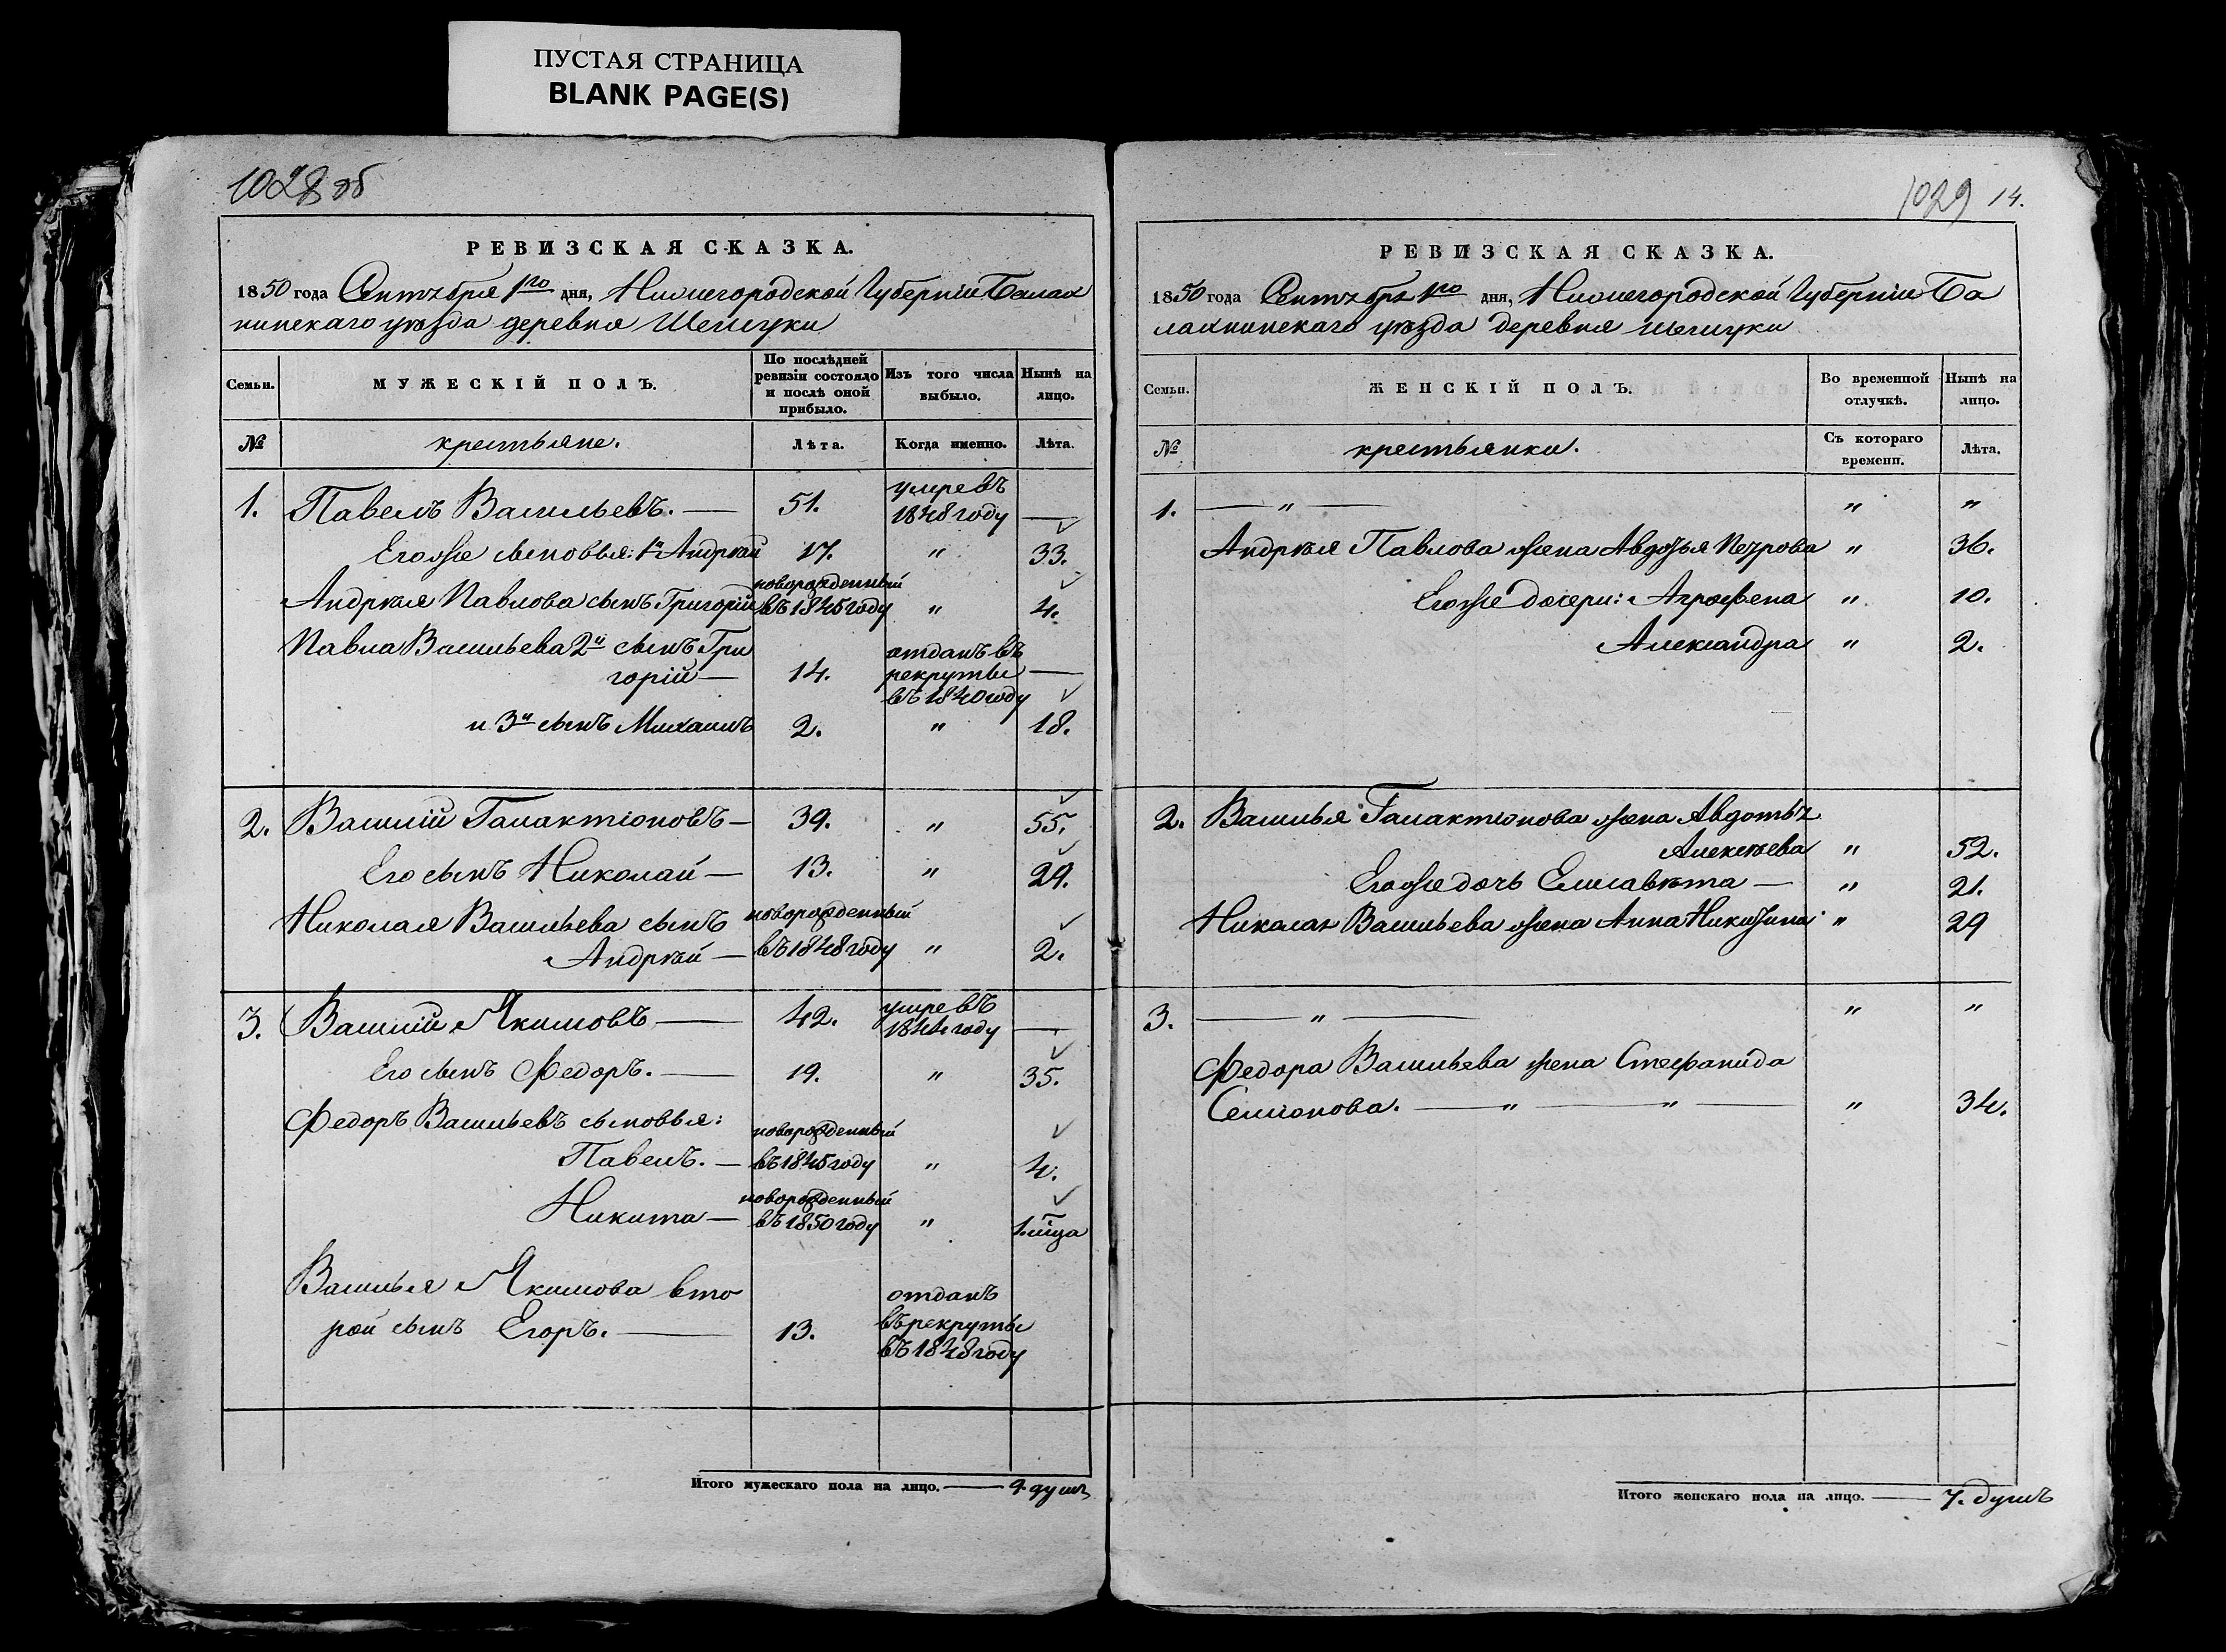 ПУСТАЯ СТРАНИЦА
BLANK PAGE(S)
1028 об
РЕВИЗСКАЯ СКАЗКА.
1850 года Сентября 1го дня, Нижегородской Губерніи Балах
нинскаго уѣзда деревня
Семьи.
МУЖЕСКІЙ ПОЛЪ.
По послѣдней ревизіи состояло и послѣ оной прибыло.
Изъ того числа выбыло.
Нынѣ на лицо.
№ крестьяне. Лѣта. Когда именно. Лѣта.
1. Павелъ Васильевъ. — 51. умре въ 1848 году —
Его же сыновья: 1й Андрѣй 17. " 33.
Андрѣя Павлова сынъ Григорій новорожденный въ 1845 году " 4.
Павла Васильева 2й сынъ Гри
горій — 14. отданъ въ рекруты въ 1840 году —
и 3й сынъ Михаилъ 2. " 18.
2. Василій Галактіоновъ — 39. " 55.
Его сынъ Николай — 13. " 29.
Николая Васильева сынъ новорожденный
Андрѣй — въ 1848 году " 2.
3. Василій Якимовъ — 42. умре въ 1844 году —
Его сынъ Федоръ. — 19. " 35.
Федоръ Васильевъ сыновья:
Павелъ. — новорожденный въ 1845 году " 4.
Никита — новорожденный въ 1850 году " 1. мца
Василья Якимова вто
рой сынъ Егоръ. — 13. отданъ въ рекруты въ 1848 году
Итого мужескаго пола на лицо. — 9. душъ
1029 14.
РЕВИЗСКАЯ СКАЗКА.
1850 года Сентября 1го дня, Нижегородской Губерніи Ба
лахнинскаго уѣзда деревня
Семьи.
ЖЕНСКІЙ ПОЛЪ.
Во временной отлучкѣ.
Нынѣ на лицо.
№ крестьянки. Съ котораго времени. Лѣта.
1. — " — " "
Андрѣя Павлова жена Авдотья Петрова " 36.
Его же дочери: Аграфена " 10.
Александра " 2.
2. Василья Галактіонова жена Авдотья
Алексѣева " 52.
Его же дочь Елисавѣта — " 21.
Николая Васильева жена Анна Никитина " 29
3. — " — " "
Федора Васильева жена Стефанида
Семионова. — " — " — " 34.
Итого женскаго пола на лицо. — 7. душъ